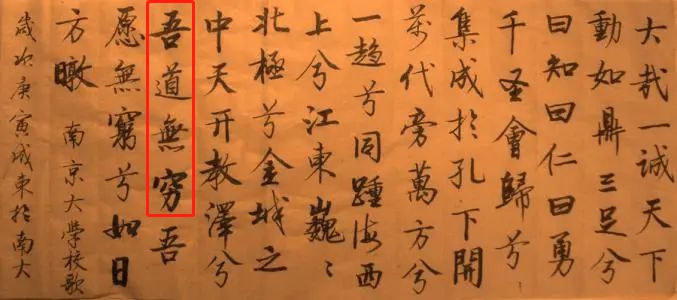 大哉一诚天下
動如鼎三足兮
曰知曰仁曰勇
千圣會歸兮
集成於孔下開
萬代旁萬方兮
一趋兮同踵海西
上兮江東巍〻
北極兮金城之
中天开教澤兮
吾道無穷吾
愿無窮兮如日
方暾 南京大學校歌
歲次庚寅城東於南大